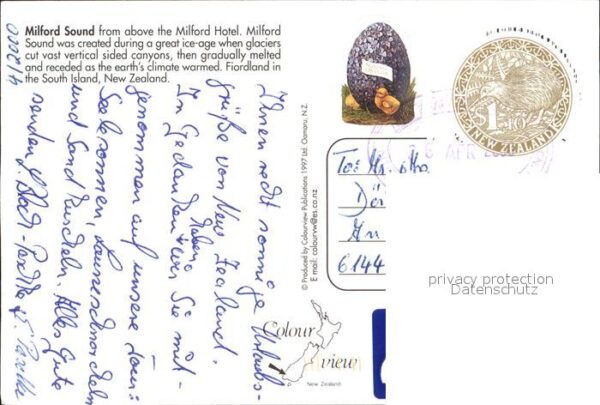 Milford Sound from above the Milford Hotel. Milford
Sound was created during a great ice-age when glaciers
cut vast vertical sided canyons, then gradually melted
and receded as the earth's climate warmed. Fiordland in
the South Island, New Zealand.
Ihnen recht sonnige Urlaubs-
grüße von New Zealand.
In Gedanken haben wir Sie mit-
genommen auf unsere Tour:
Seele sonnen, Launeschnorcheln
und Sand kuscheln. Alles Gute
senden
© Produced by Colourview Publications 1997 Ltd. Oamaru, N.Z.
E mail: colourvw@es.co.nz
$1
NEW ZEALAND
6 APR
To:
6144
privacy protection
Datenschutz
Colour
view
New Zealand